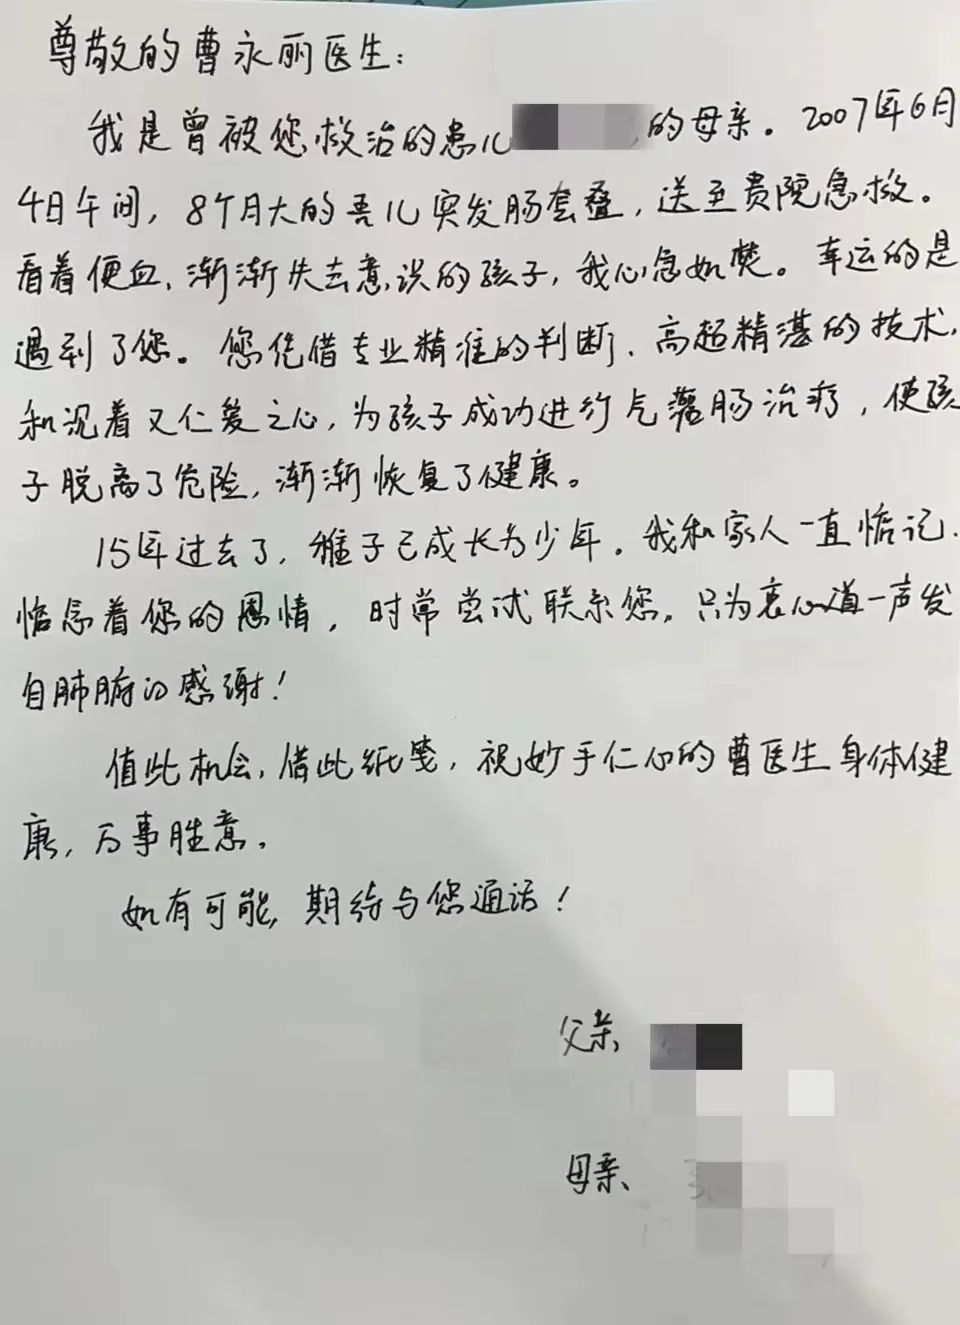 尊敬的曹永丽医生：
我是曾被您救治的患儿 的母亲。2007年6月
4日午间，8个月大的吾儿突发肠套叠，送至贵院急救。
看着便血、渐渐失去意识的孩子，我心急如焚。幸运的是
遇到了您。您凭借专业精准的判断、高超精湛的技术，
和沉着又仁爱之心，为孩子成功进行气灌肠治疗，使孩
子脱离了危险，渐渐恢复了健康。
15年过去了，稚子已成长为少年。我和家人一直惦记、
惦念着您的恩情，时常尝试联系您。只为衷心道一声发
自肺腑的感谢！
值此机会，借此纸笺，祝妙手仁心的曹医生身体健
康，万事胜意。
如有可能，期待与您通话！
父亲、
母亲、